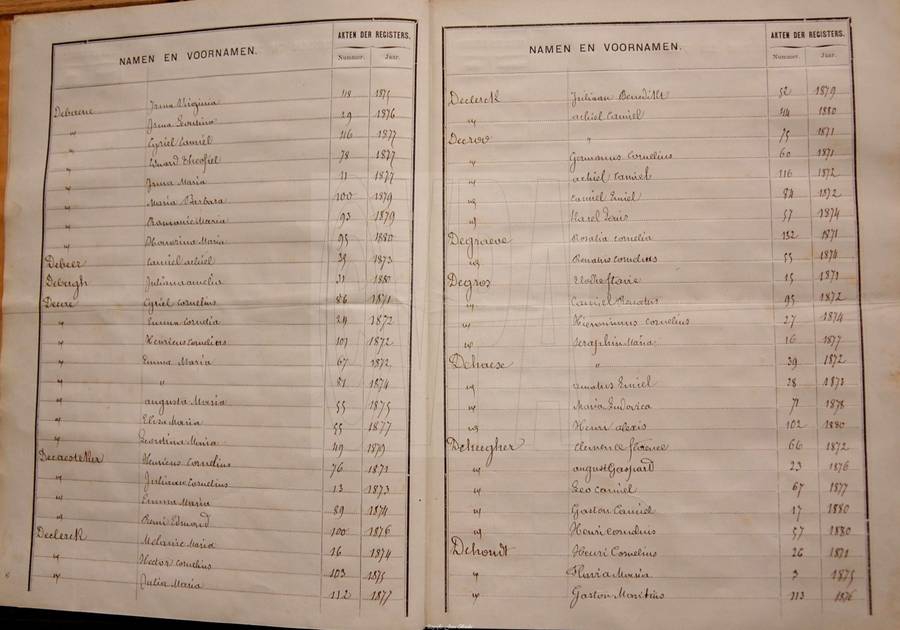 NAMEN EN VOORNAMEN. AKTEN DER REGISTERS.
Nummer. Jaar.
Irma Virginia 118 1875
Debaene Irma Leontina 29 1876
" Cyriel Camiel 46 1877
" Eduard Theofiel 78 1877
" Irma Maria 11 1877
" Maria Barbara 100 1879
" Romanie Maria 93 1879
" Maria 95 1880
Debeer Camiel achiel 35 1873
Debergh 31 1880
Deere Cyriel Cornelius 86 1871
" Emma Cornelia 24 1872
" Henricus Cornelius 107 1872
" Emma Maria 67 1872
" " 81 1874
" augusta Maria 55 1875
" Elisa Maria 55 1877
" Leontina Maria 49 1879
Decaesteker Henricus Cornelius 76 1871
" Julianus Cornelius 13 1873
" Emma Maria 89 1874
" Remi Edmond 100 1876
Declerck Melanie Maria 16 1874
" Hector Cornelius 103 1875
" Julia Maria 112 1877
NAMEN EN VOORNAMEN. AKTEN DER REGISTERS.
Nummer. Jaar.
Declerck Juliaan Benedikt 52 1879
" achiel Camiel 44 1880
" 75 1871
" Germanus Cornelius 60 1871
" achiel Camiel 116 1872
" Camiel Emiel 84 1872
" Karel Louis 57 1874
Degraeve Rosalia Cornelia 132 1871
" Renatus Cornelius 55 1874
Degros 15 1871
" Camiel Renatus 95 1872
" Hieronimus Cornelius 27 1874
" Seraphin Maria 16 1877
Dehaese " 39 1872
" amatus Emiel 28 1873
" Maria Ludovica 71 1878
" Henri alexis 102 1880
Deheegher Clemence florence 66 1872
" august Gaspard 23 1876
" Leo Camiel 67 1877
" Gaston Camiel 17 1880
" Henri Cornelius 57 1880
Dehondt Henri Cornelius 26 1871
" Flavia Maria 3 1875
" Gaston Mauritius 113 1876